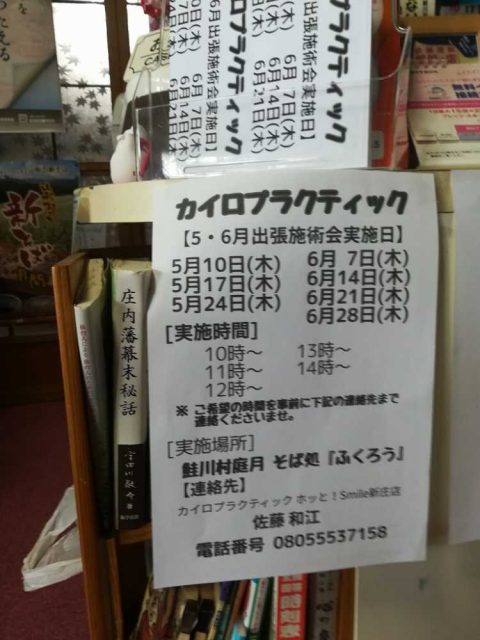 カイロプラクティック
【5・6月出張施術会実施日】
5月10日(木) 6月 7日(木)
5月17日(木) 6月14日(木)
5月24日(木) 6月21日(木)
6月28日(木)
[実施時間]
10時～ 13時～
11時～ 14時～
12時～
※ ご希望の時間を事前に下記の連絡先まで
連絡くださいませ。
[実施場所]
鮭川村庭月 そば処『ふくろう』
【連絡先】
カイロプラクティック ホッと！Smile新庄店
佐藤 和江
電話番号 08055537158
庄内藩幕末秘話
カイロプラクティック
6月出張施術会実施日】
6月 7日(木)
6月14日(木)
6月21日(木)
新そば
無料